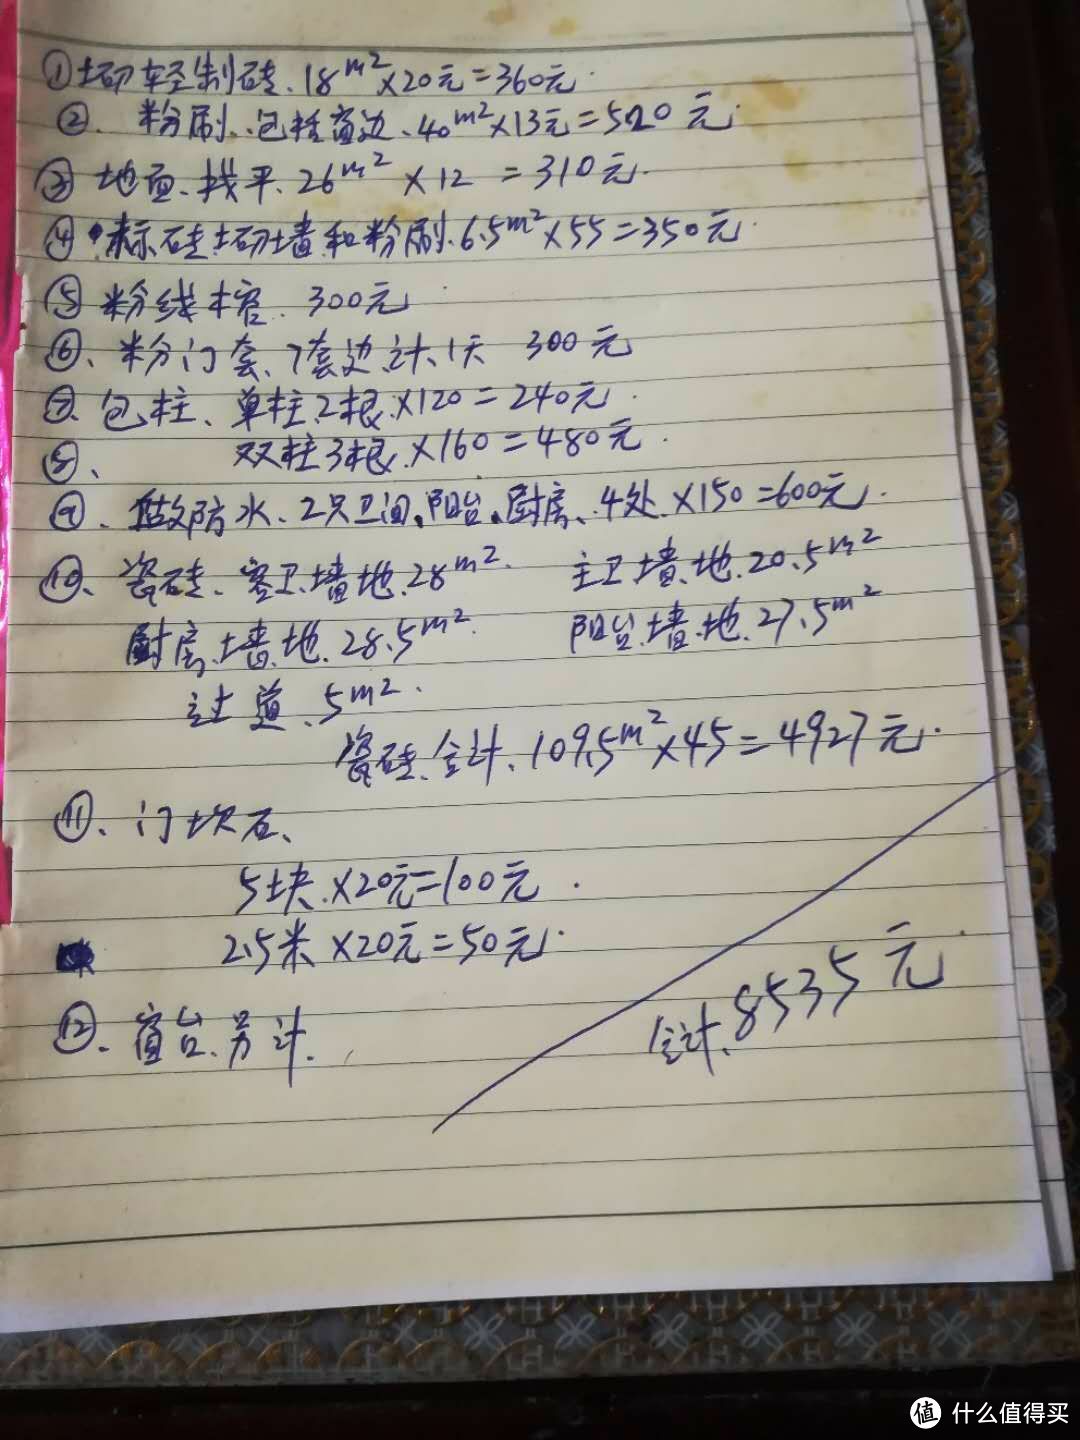 ①砌轻制砖.18m²×20元=360元.
②.粉刷.包括窗边.40m²×13元=520元.
③地面.找平.26m²×12=310元.
④标砖砌墙和粉刷.6.5m²×55=350元.
⑤粉线槽.300元
⑥、粉门套、7套边.计.1天 300元
⑦.包柱、单柱.2根.×120=240元.
⑧、双柱3根.×160=480元.
⑨、做防水、2只卫间.阳台.厨房、4处.×150=600元.
⑩、瓷砖、客卫.墙地.28m². 主卫墙.地.20.5m²
厨房.墙.地.28.5m². 阳台.墙.地.27.5m²
过道.5m².
瓷砖.合计、109.5m²×45=4927元.
⑪、门坎石、
5块.×20元=100元.
2.5米×20元=50元.
⑫、窗台.另计.
合计、8535元
值 什么值得买